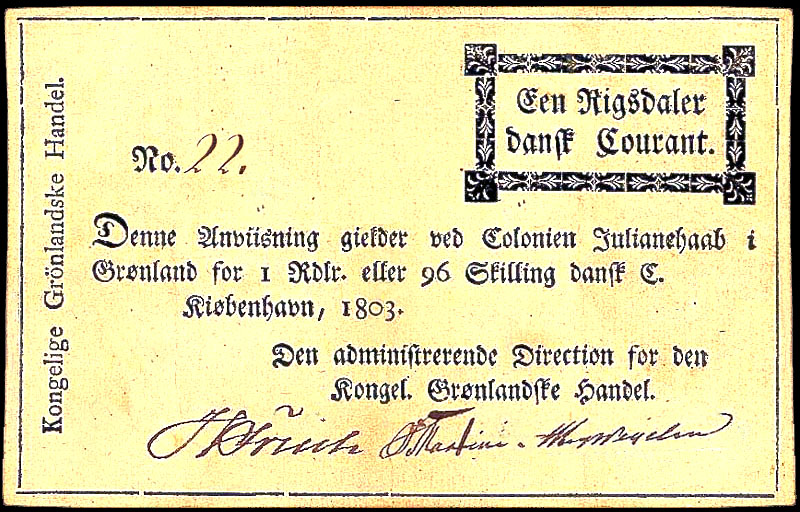 Kongelige Grönlandske Handel.
Een Rigsdaler
dansk Courant.
No. 22.
Denne Anviisning gielder ved Colonien Julianehaab i
Grønland for 1 Rdlr. eller 96 Skilling dansk C.
Kiøbenhavn, 1803.
Den administrerende Direction for den
Kongel. Grønlandske Handel.